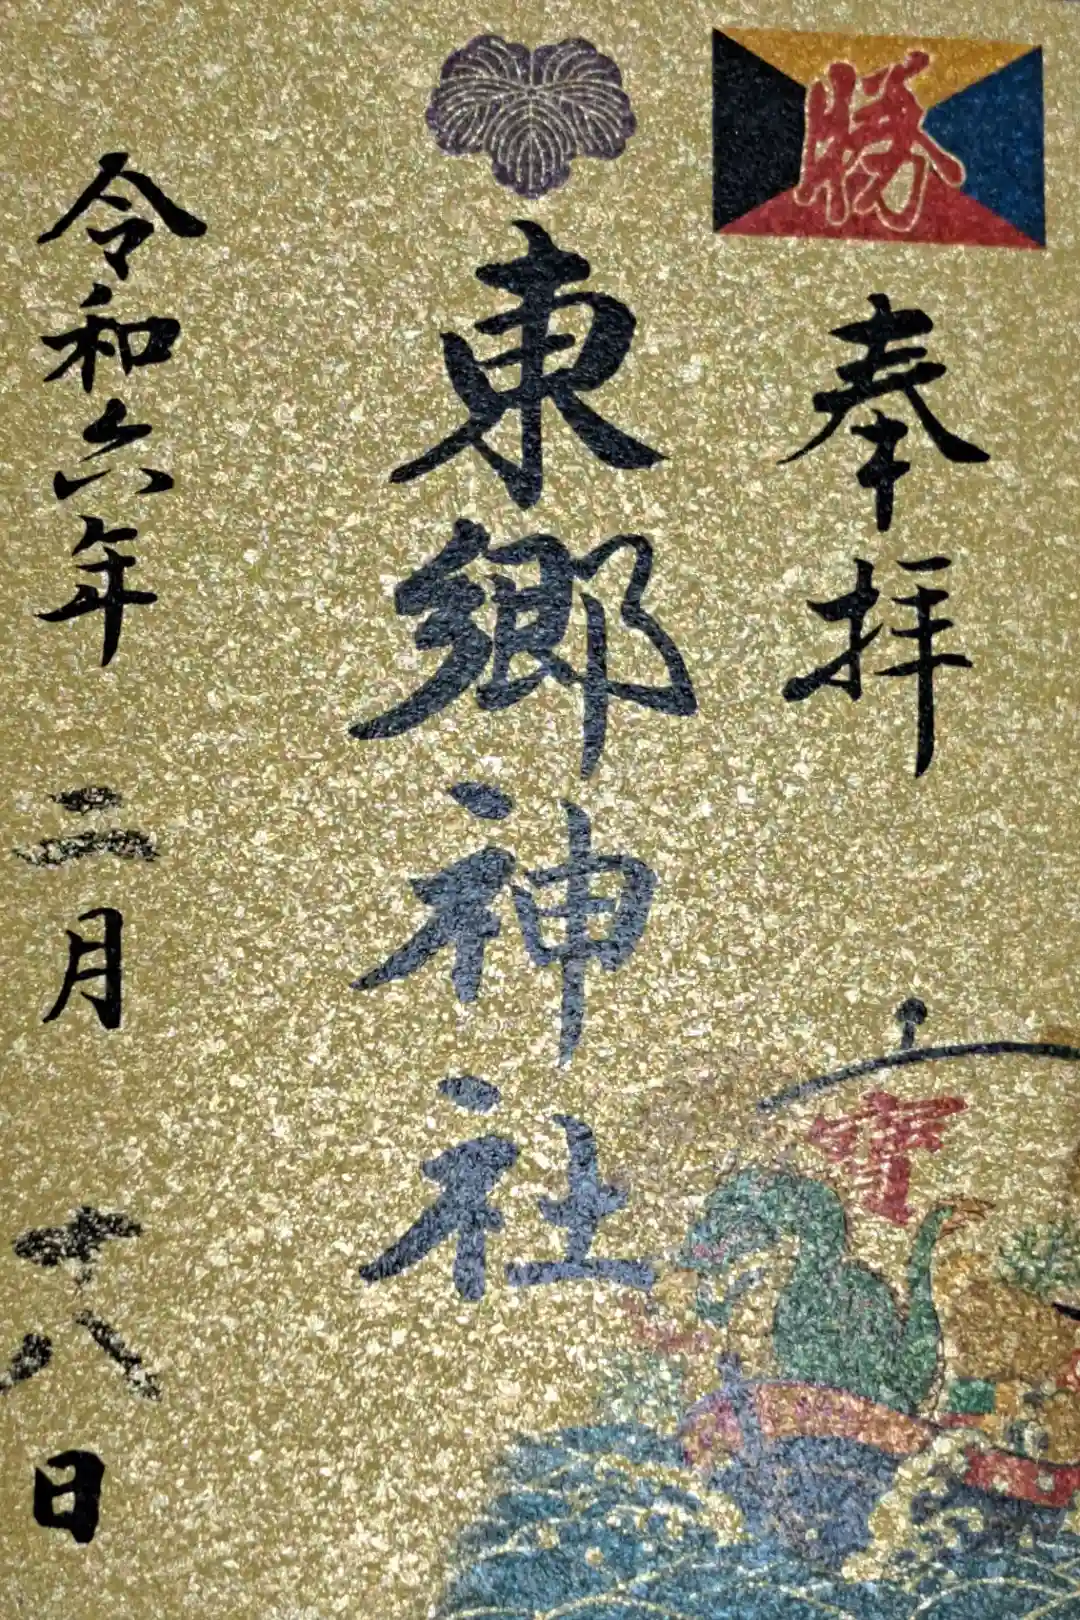 勝
奉拝
寶
東郷神社
令和六年二月十八日